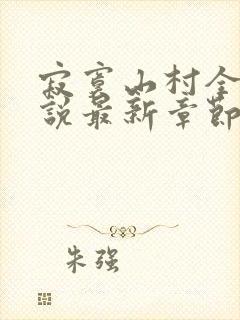 寂寞山村全
说最新章节
朱强